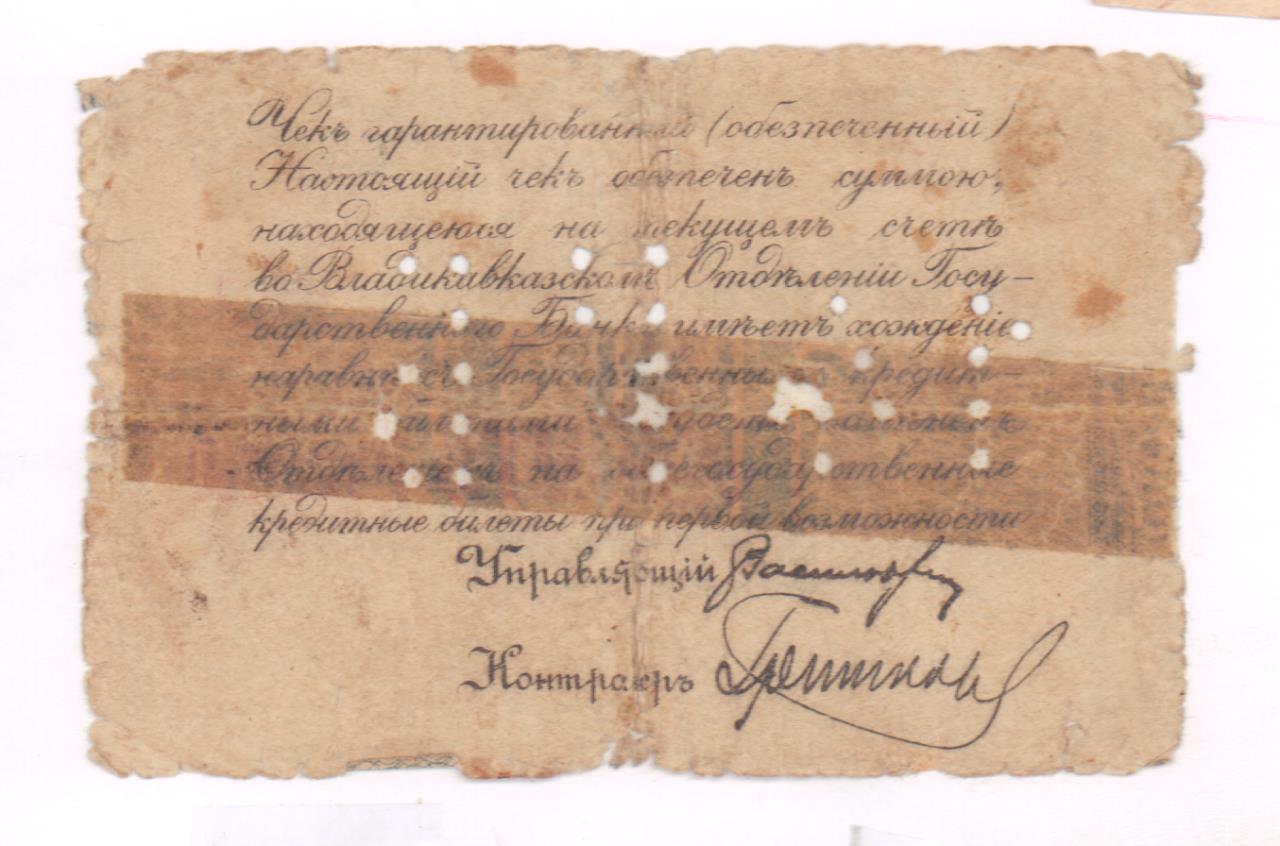 Чекъ гарантированный (обезпеченный)
Настоящій чекъ обезпеченъ суммою,
находящеюся на текущемъ счетѣ
во Владикавказскомъ Отдѣленіи Госу-
дарственнаго Банка имѣетъ хожденіе
наравнѣ съ Государственными кредит-
ными билетами
Отдѣленіемъ на государственные
кредитные билеты при первой возможности
Управляющій
Контролеръ